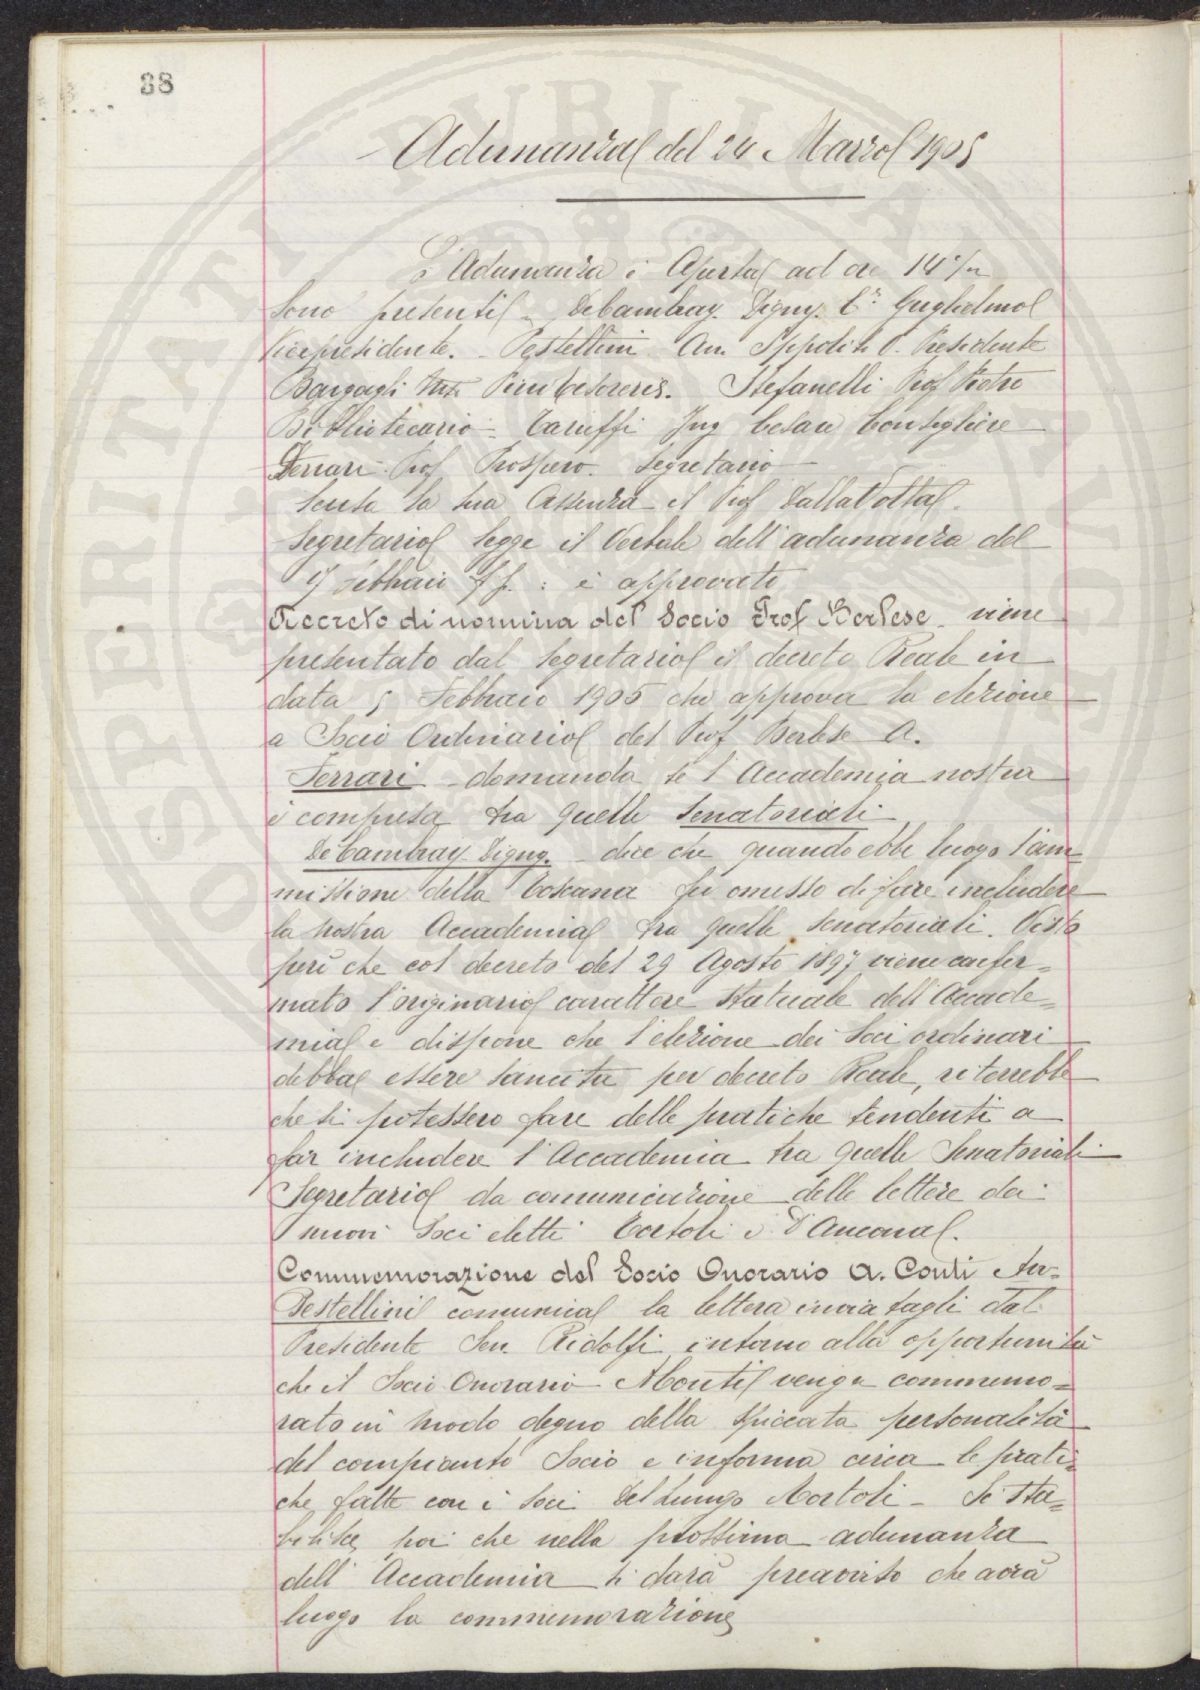 38
Adunanza del 24 Marzo 1905
L'Adunanza è Aperta ad ore 14 1/2
Sono presenti - De Cambray. Digny. Cte Guglielmo
Vicepresidente. - Pestellini Avv. Ippolito V. Presidente
Bargagli Piero Tesoriere. Stefanelli Prof Pietro
Bibliotecario - Caruffi Ing Cesare Consigliere
Ferrari Prof Prospero. Segretario
Scusa la sua Assenza il Prof DallaVolta.
Segretario legge il Verbale dell'adunanza del
17 Febbraio : è approvato
Decreto di nomina del Socio Prof Berlese - viene
presentato dal Segretario il decreto Reale in
data 5 Febbraio 1905 che approva la elezione
a Socio Ordinario del Prof Berlese A.
Ferrari - domanda se l'Accademia nostra
è compresa tra quelle Senatoriali
De Cambray Digny. - dice che quando ebbe luogo l'am=
missione della Toscana fu omesso di fare includere
la nostra Accademia tra quelle Senatoriali. Visto
però che col decreto del 29 Agosto 1897 viene confer=
mato l'originario carattere Statuale dell'Accade=
mia e dispone che l'elezione dei Soci ordinari
debba essere sancita per decreto Reale, riterrebbe
che si potessero fare delle pratiche tendenti a
far includere l'Accademia tra quelle Senatoriali
Segretario da comunicazione delle lettere dei
nuovi Soci eletti Tortoli e D'Ancona.
Commemorazione del Socio Onorario A. Conti Avv.
Pestellini comunica la lettera inviatagli dal
Presidente Sen. Ridolfi intorno alla opportunità
che il Socio Onorario Conti venga commemo=
rato in modo degno della spiccata personalità
del compianto Socio e informa circa le prati=
che fatte con i Soci Del Lungo Tortoli - Si sta=
bilisce poi che nella prossima adunanza
dell'Accademia si darà preavviso che avrà
luogo la commemorazione